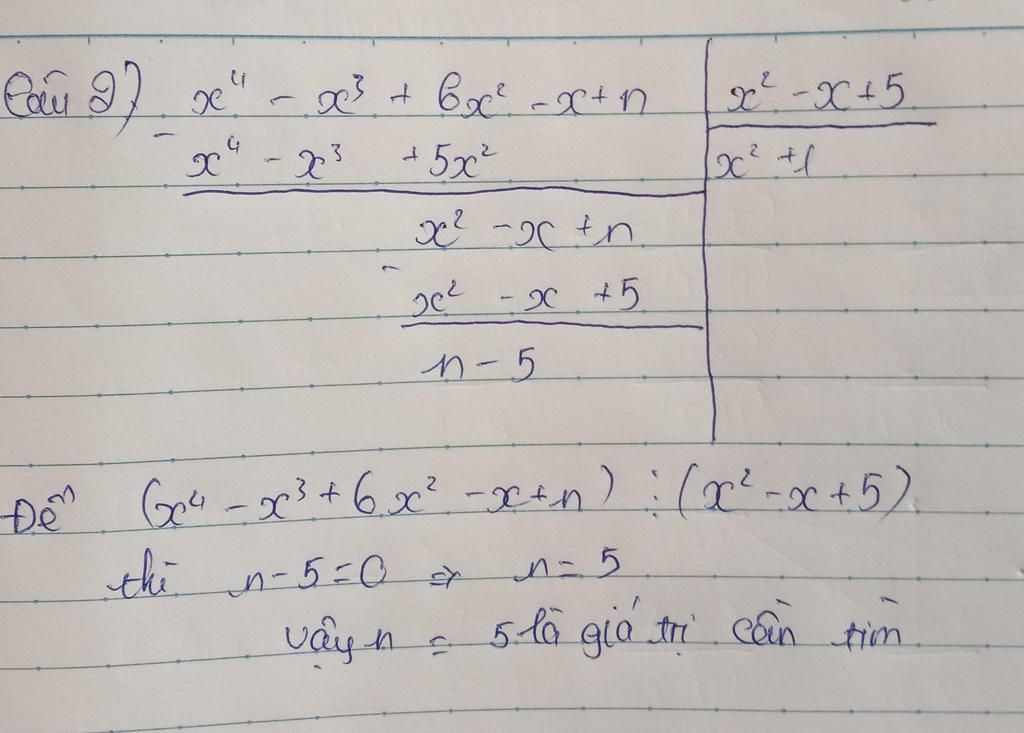 Câu 2) x⁴ - x³ + 6x² - x + n | x² - x + 5
- x⁴ - x³ + 5x² | x² + 1
x² - x + n
- x² - x + 5
n - 5
Để (x⁴ - x³ + 6x² - x + n) ⋮ (x² - x + 5)
thì n - 5 = 0 ⇒ n = 5
Vậy n = 5 là giá trị cần tìm